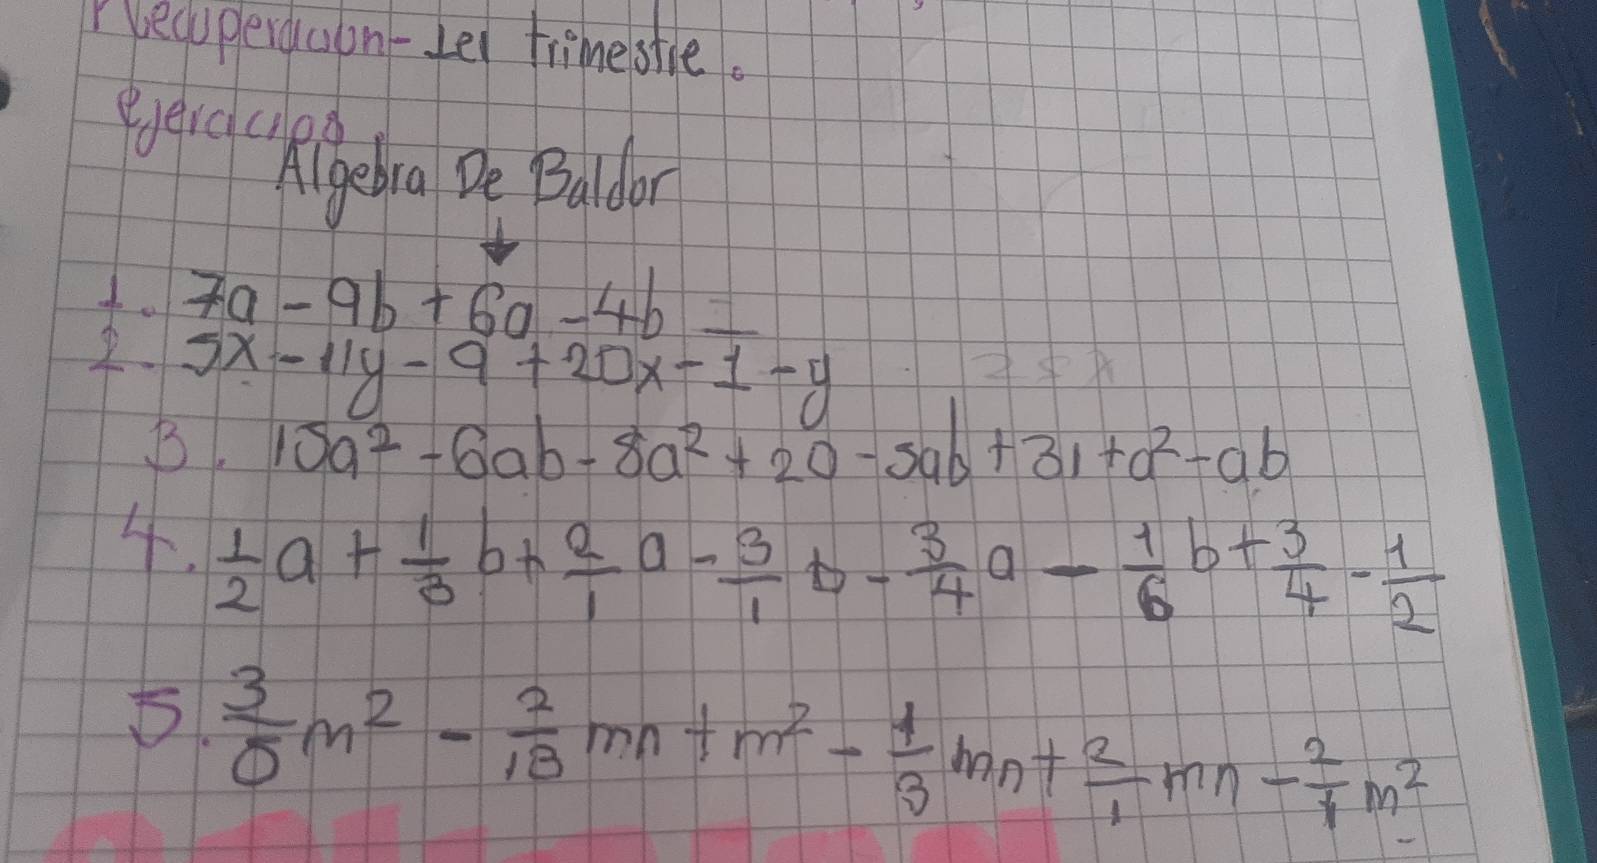 Recuperacion-1er trimestre.
ejercicios
Algebra De Baldor
↓
1. 7a - 9b + 6a - 4b =
2. 5x - 11y - 9 + 20x - 1 - y
3. 15a² - 6ab - 8a² + 20 - 5ab + 31 + a² - ab
4. 1/2 a + 1/3 b + 2/1 a - 3/1 b - 3/4 a - 1/6 b + 3/4 - 1/2
5. 3/5 m² - 2/13 mn + m² - 1/3 mn + 2/1 mn - 2/1 m²